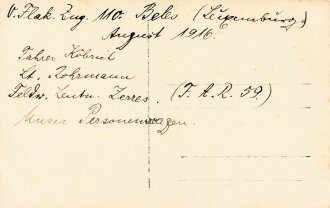 V. Flak. Zug. 110. Beles (Luxemburg)
August 1916.
Fahrer Köbrich
Lt. Rohrmann
Feldw. Leutn. Zerres. (F. A. R. 59.)
Unser Personenwagen.